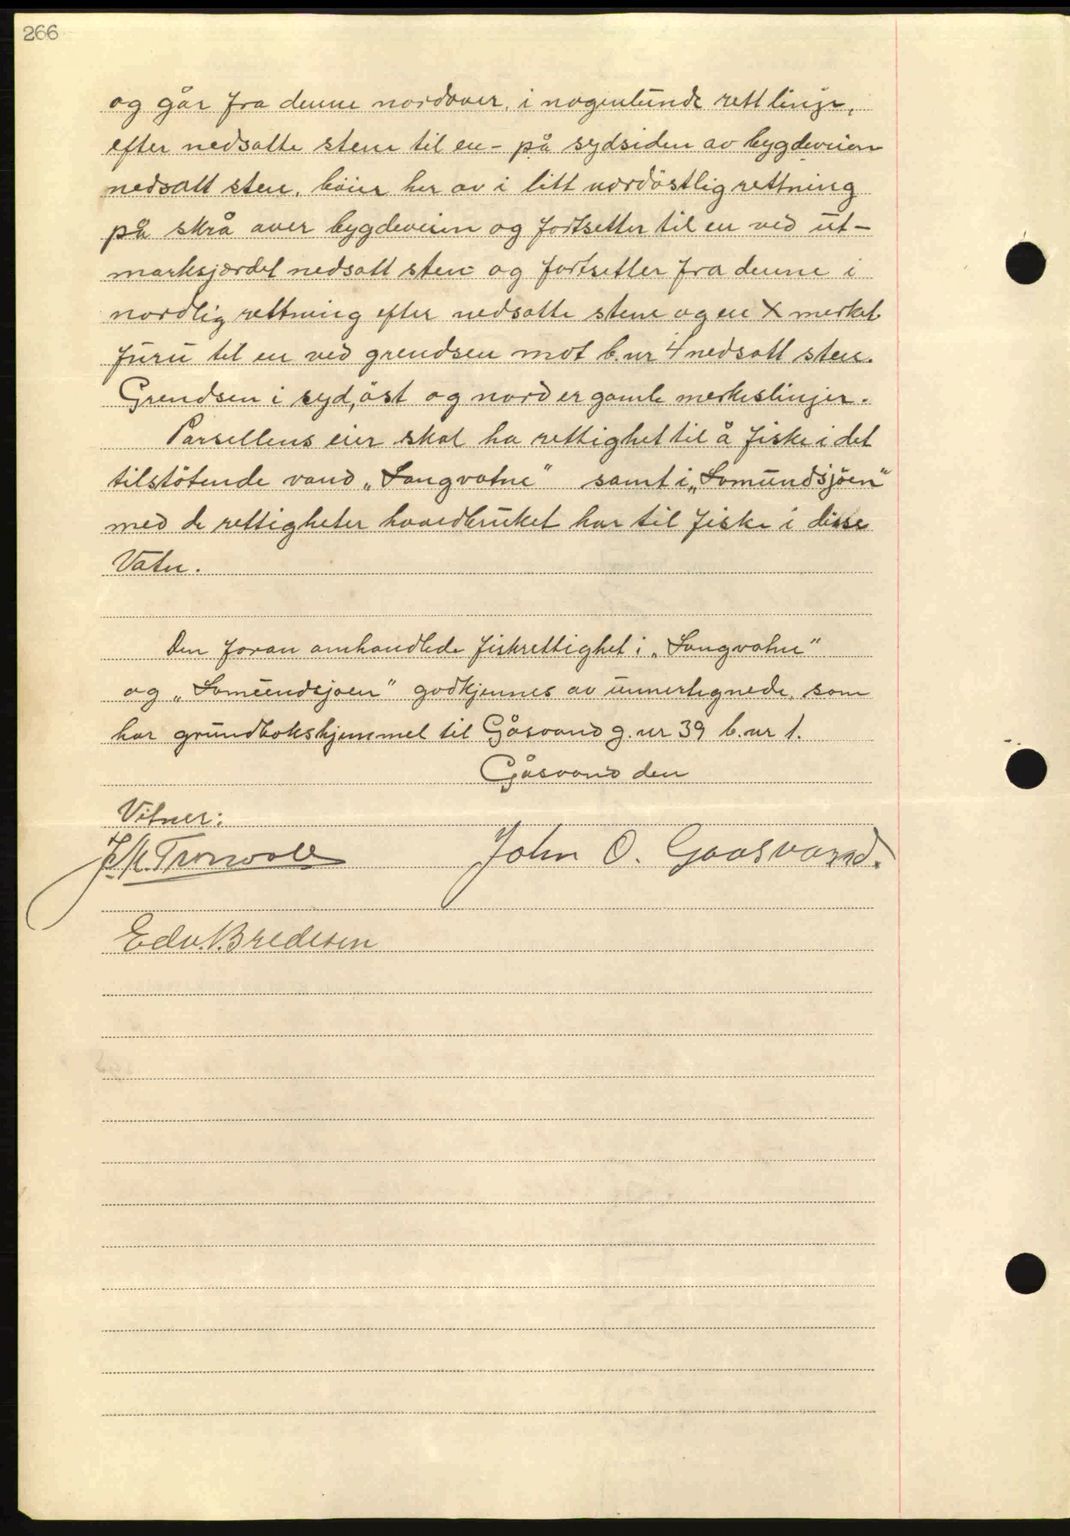 266
og går fra denne nordover, i nogenlunde rett linje,
efter nedsatte stene til en - på sydsiden av bygdeveien
nedsatt sten, böier her av i litt nordöstlig rettning
på skrå over bygdeveien og fortsetter til en ved ut-
marksjordet nedsatt sten og fortsetter fra denne i
nordlig rettning efter nedsatte stene og en X merket
furu til en ved grendsen mot b.nr 4 nedsatt sten.
Grendsen i syd, öst og nord er gamle merkeslinjer.
Parsellens eier skal ha rettighet til å fiske i det
tilstötende vand „Langvatne" samt i „Lomundsjöen"
med de rettigheter hovedbruket har til fiske i disse
Vatn.
Den foran omhandlede fiskrettighet i „Langvatne"
og „Lomundsjoen" godkjennes av unnertegnede, som
har grundbokshjemmel til Gåsvand g.nr 39 b.nr 1.
Gåsvand den
Vitner:
John O. Gaasvand.
Edv. Bredesen